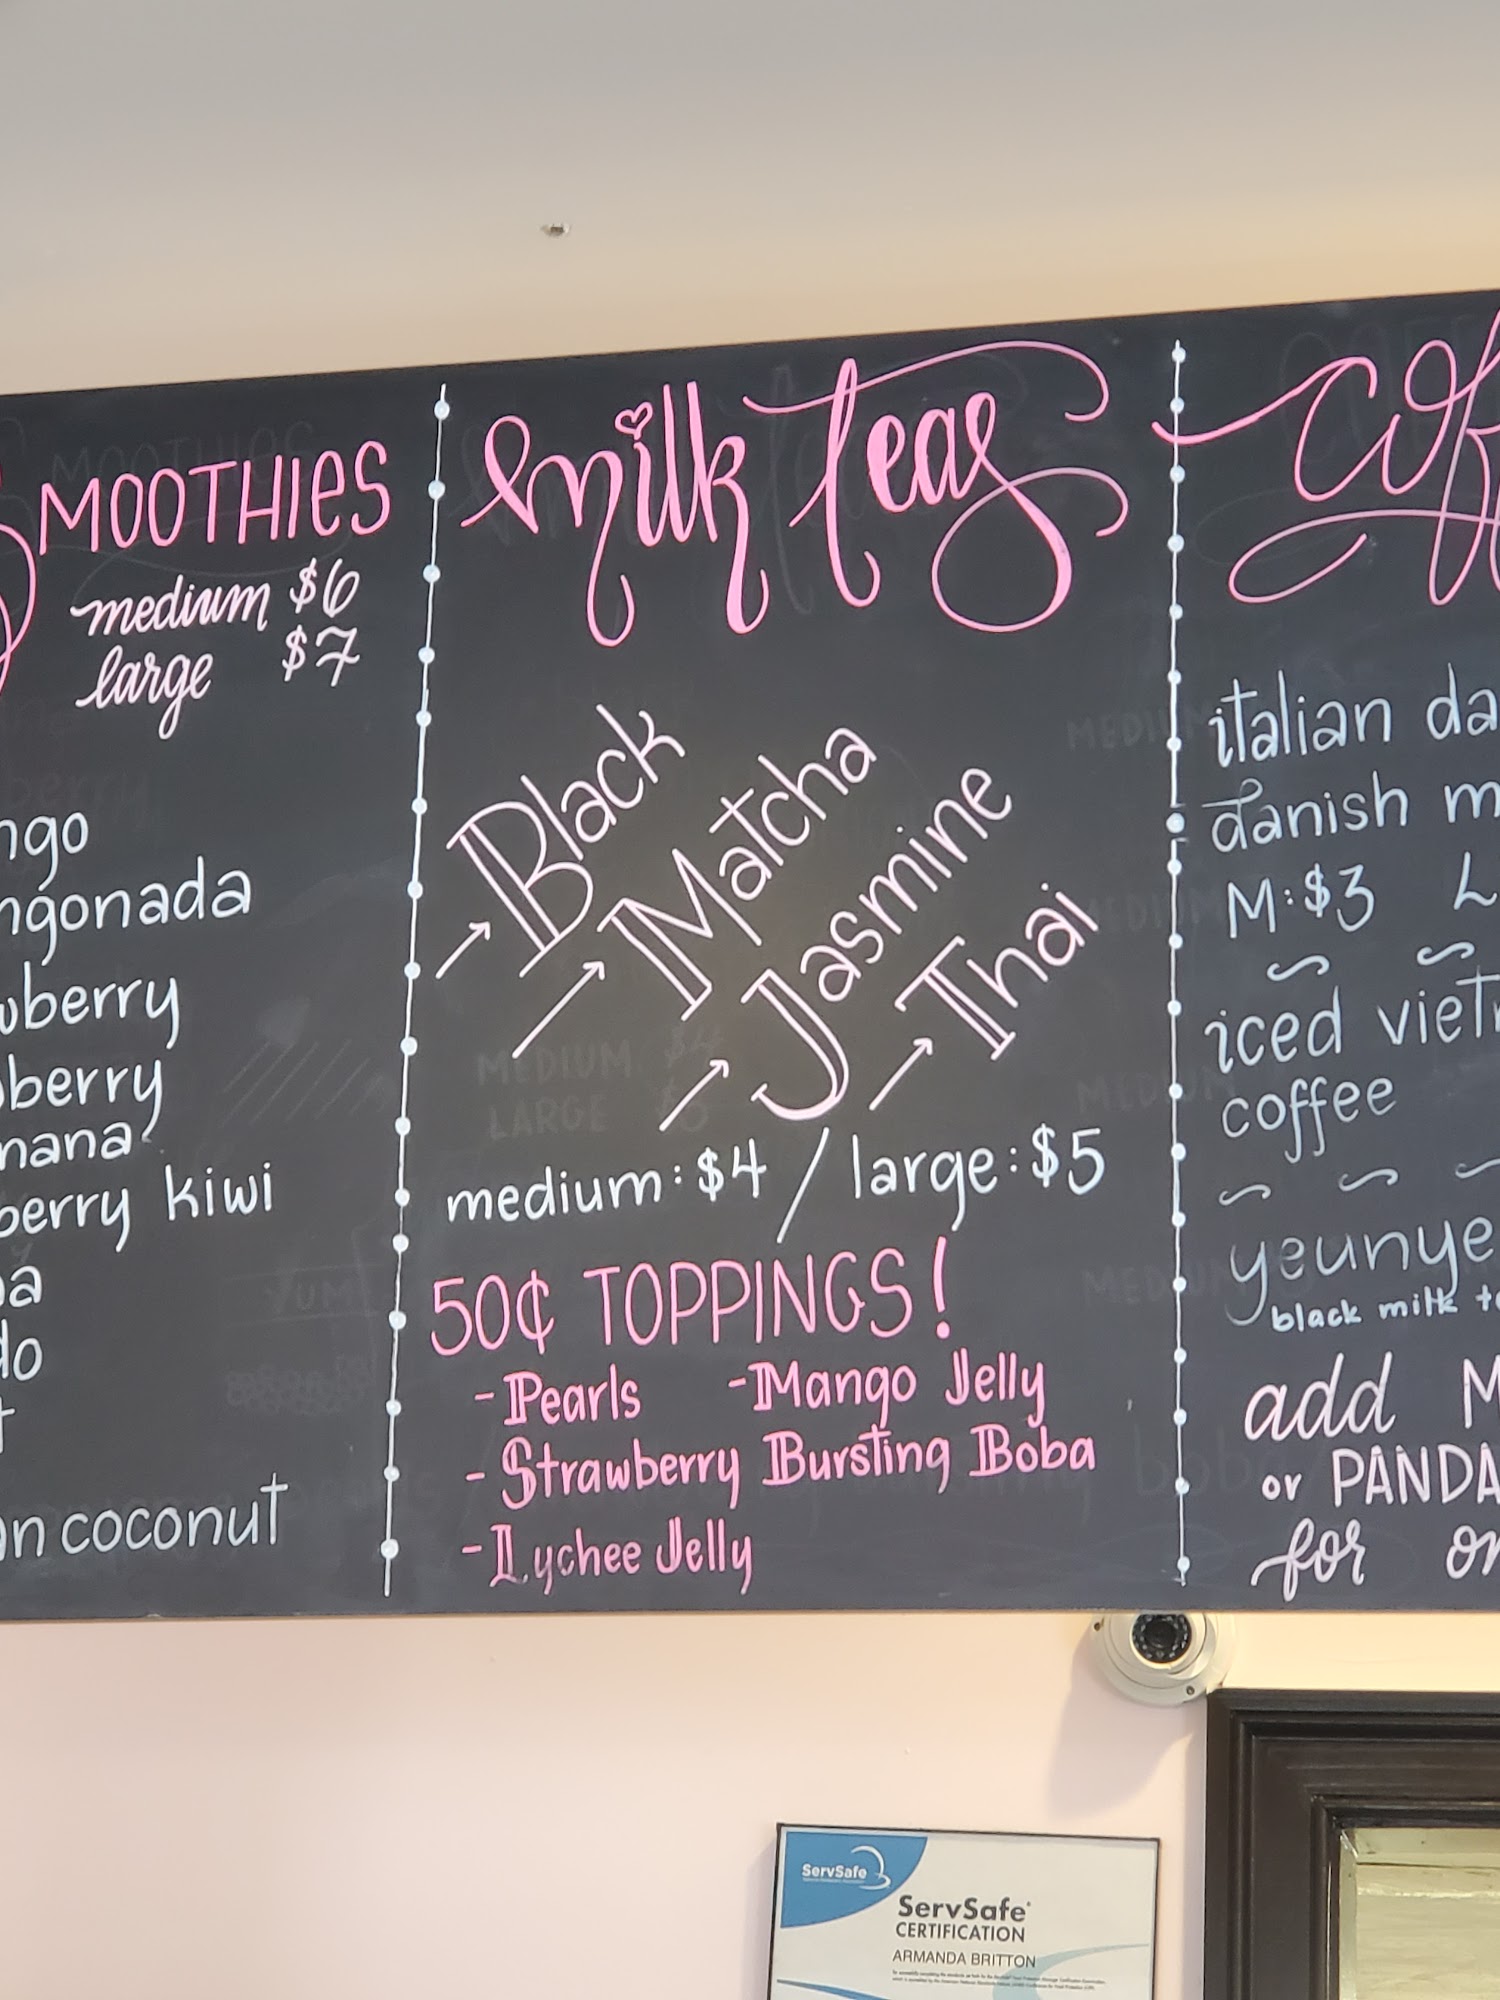 SMOOTHIES
medium $6
large $7
ngo
ngonada
berry
berry
nana
berry kiwi
a
do
t
n coconut
milk teas
Black
Matcha
Jasmine
Thai
MEDIUM $4
LARGE $5
medium: $4 / large: $5
50¢ TOPPINGS!
-Pearls -Mango Jelly
-Strawberry Bursting Boba
-Lychee Jelly
cof
italian da
danish m
M:$3 L
iced viet
coffee
yeunye
black milk te
add M
or PANDA
for on
ServSafe
ServSafe®
CERTIFICATION
ARMANDA BRITTON